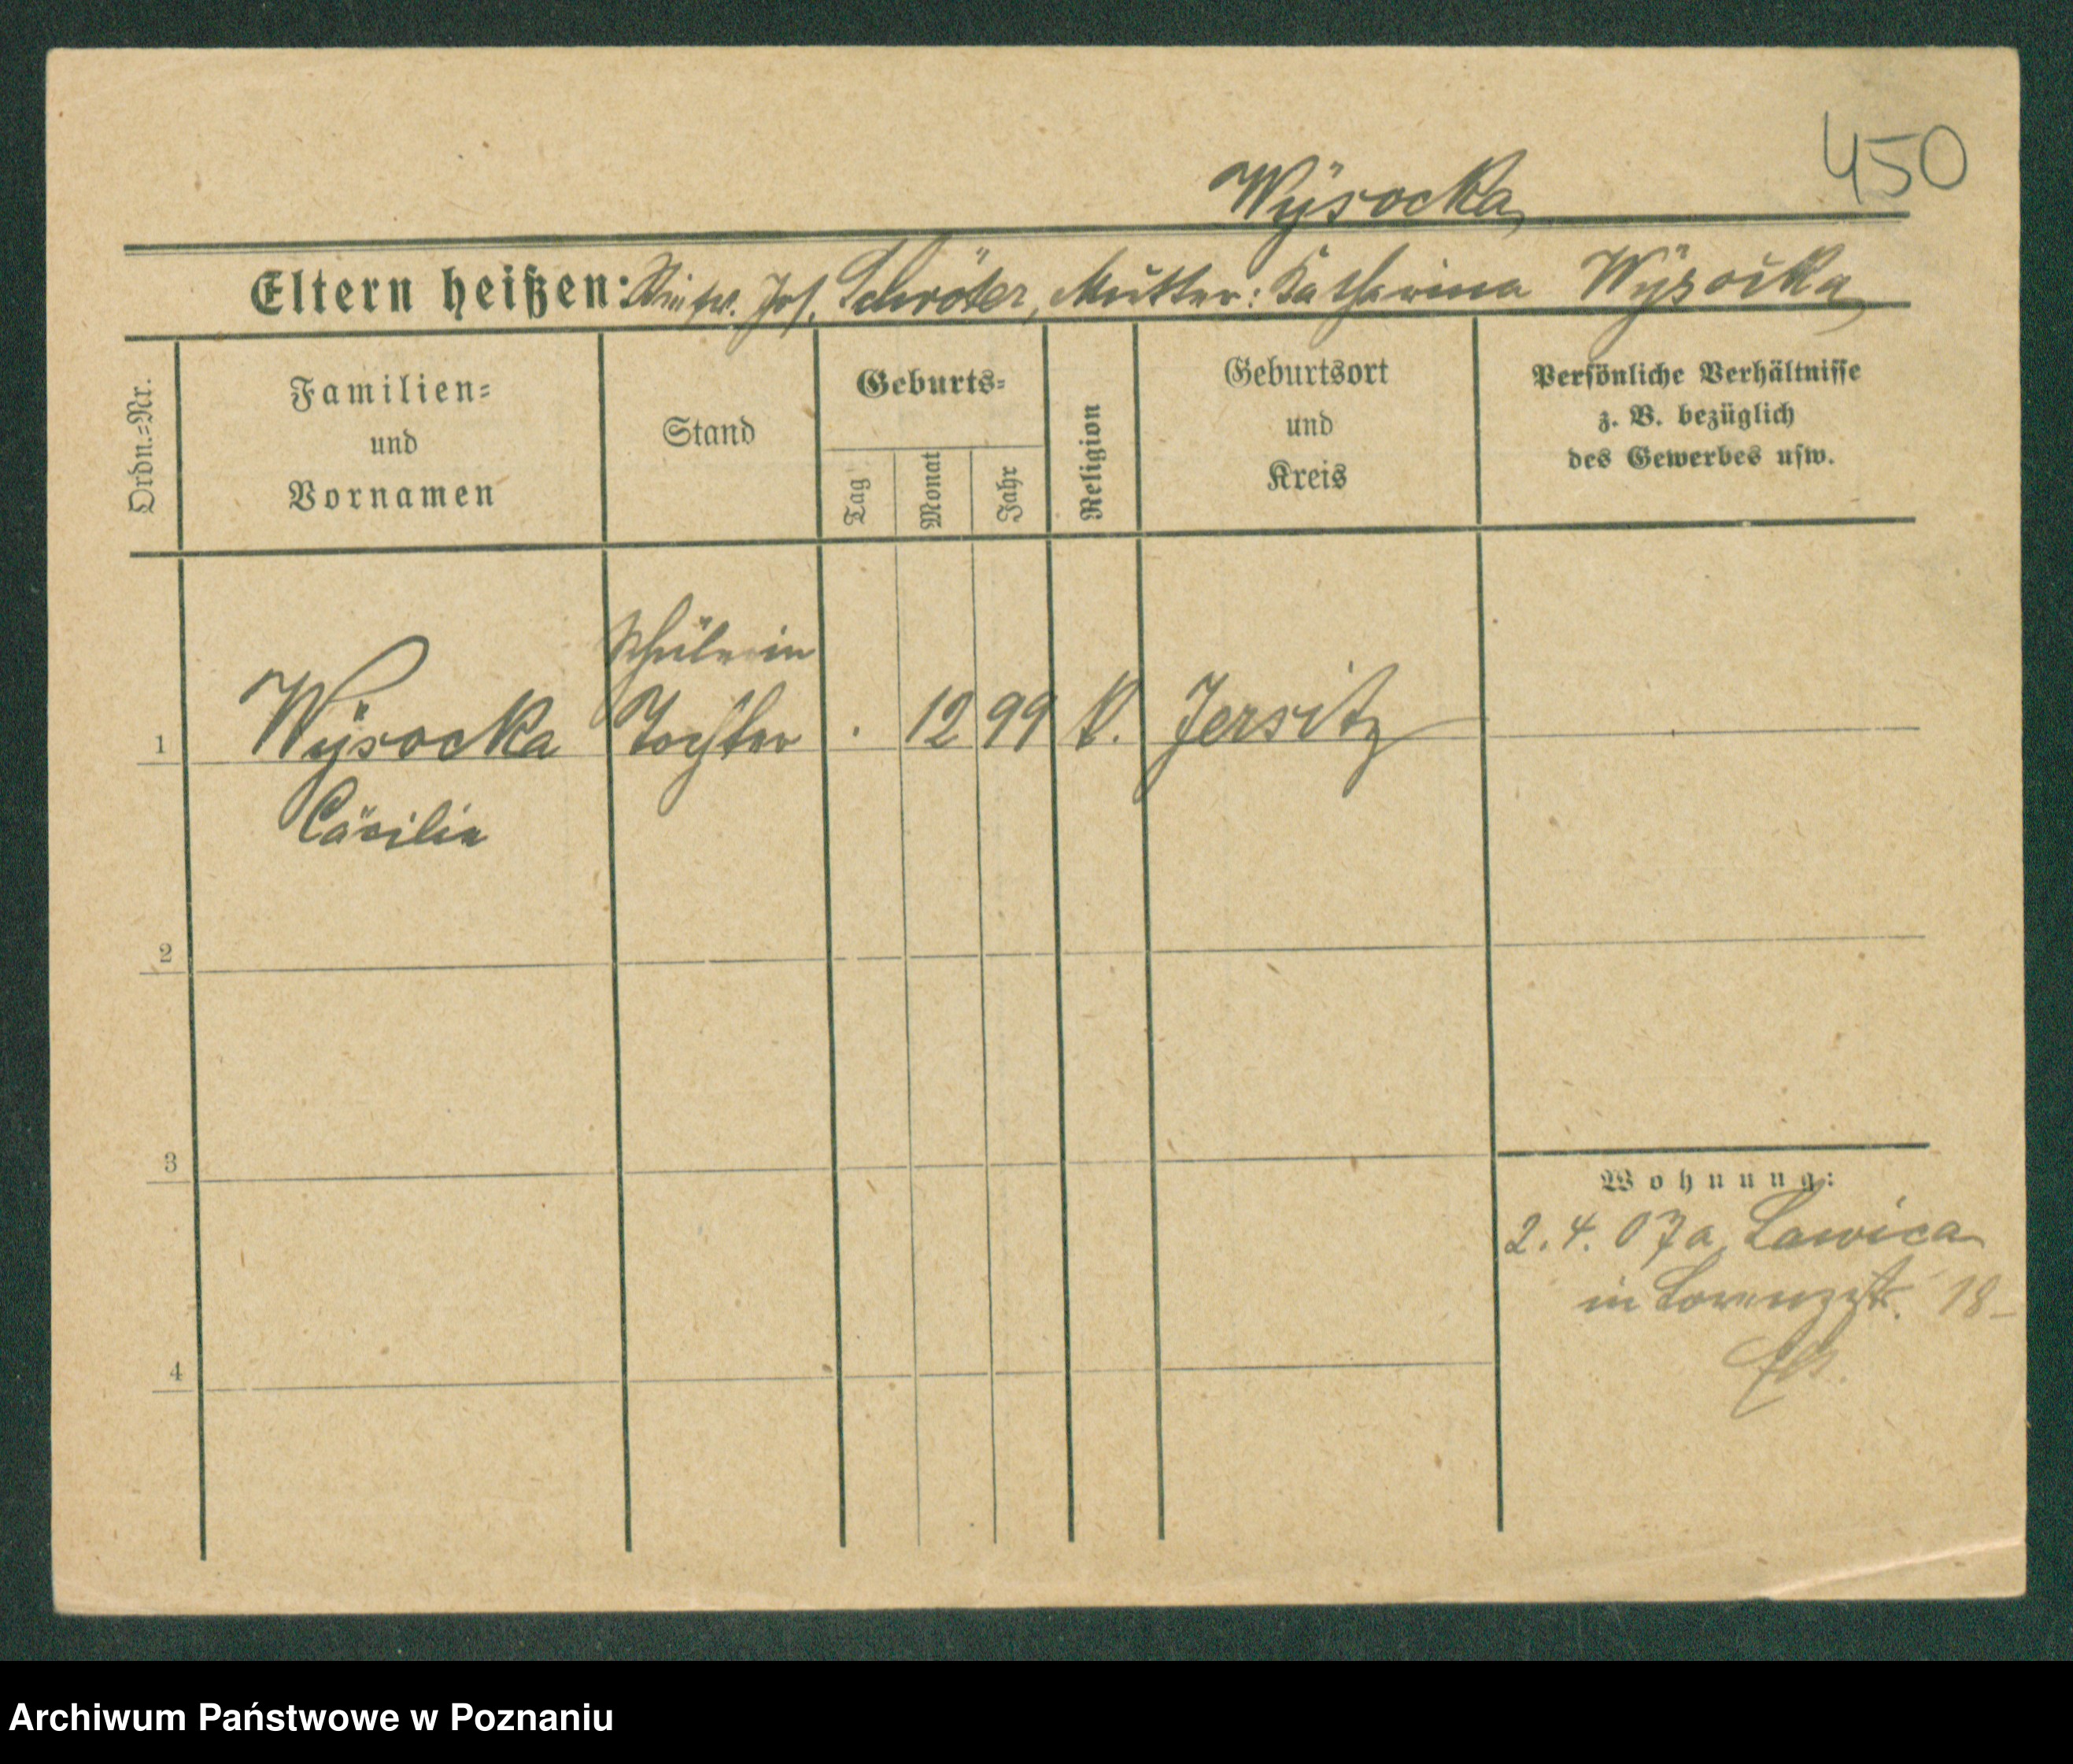 450
Wÿsocka
Eltern heißen: Jos. Schröter, Mutter: Katharina Wÿsocka
Ordn.=Nr.
Familien=
und
Vornamen
Stand
Geburts=
Tag
Monat
Jahr
Religion
Geburtsort
und
Kreis
Persönliche Verhältnisse
z. B. bezüglich
des Gewerbes usw.
Schülerin
1 Wÿsocka Tochter . 12 99 K. Jersitz
Cäcilie
2
3
Wohnung:
2.4.07 a. Lawica
in Lorenzstr. 18
4
Archiwum Państwowe w Poznaniu